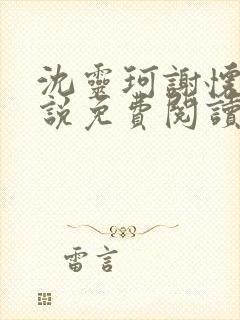 沈靈珂謝懷
說免費閱讀
雷言